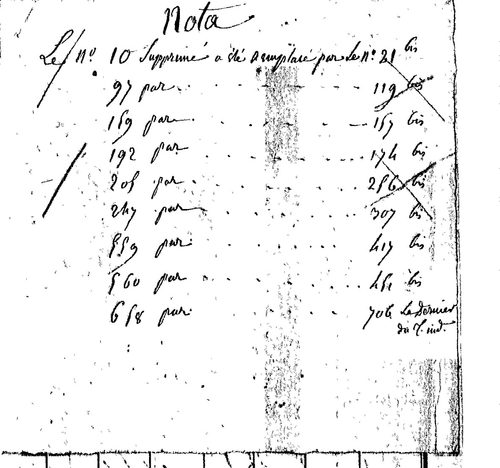 Nota
Le nº 10 Supprimé a été remplacé par Le nº 21 bis
97 par 119 bis
159 par 157 bis
192 par 174 bis
205 par 256 bis
247 par 307 bis
559 par 417 bis
560 par 451 bis
658 par 706 Le Dernier
du